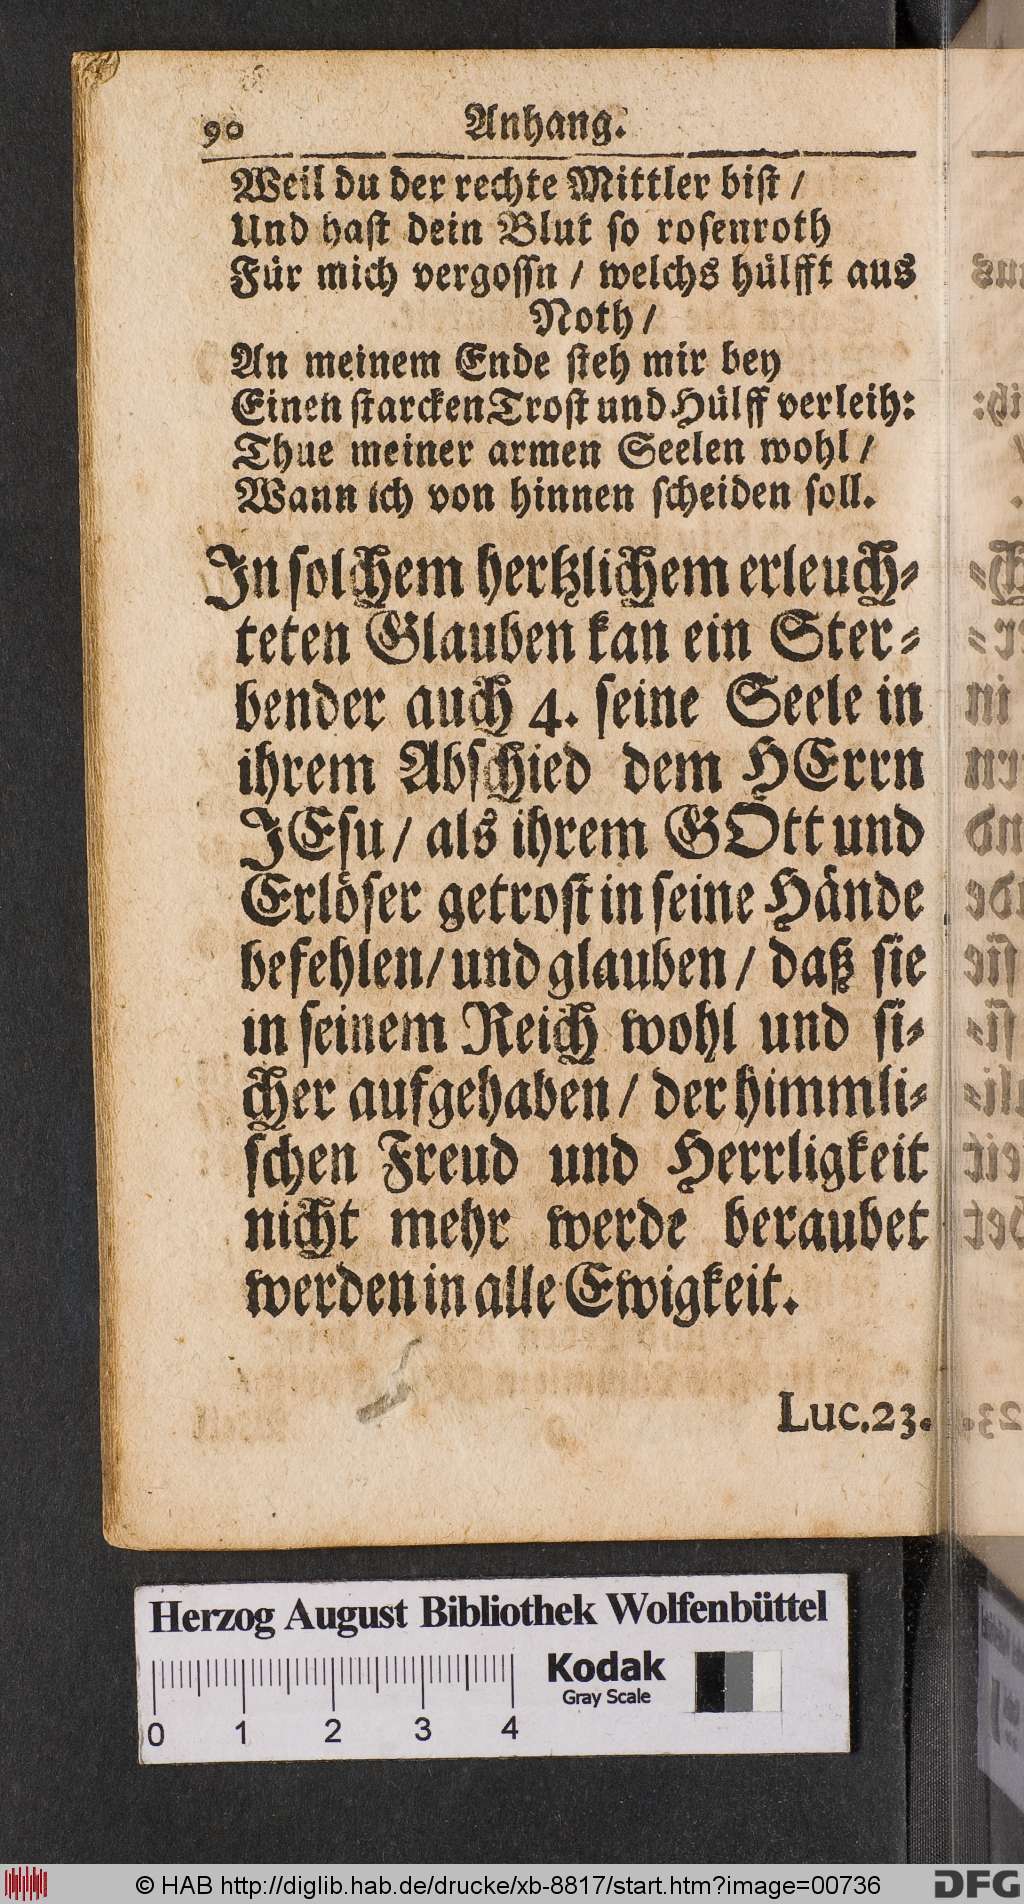 90 Anhang.
Weil du der rechte Mittler bist /
Und hast dein Blut so rosenroth
Für mich vergossn / welchs hülfft aus
Noth /
An meinem Ende steh mir bey
Einen starcken Trost und Hülff verleih:
Thue meiner armen Seelen wohl /
Wann ich von hinnen scheiden soll.
In solchem hertzlichem erleuch⸗
teten Glauben kan ein Ster⸗
bender auch 4. seine Seele in
ihrem Abschied dem HErrn
JEsu / als ihrem GOtt und
Erlöser getrost in seine Hände
befehlen / und glauben / daß sie
in seinem Reich wohl und si⸗
cher aufgehaben / der himmli⸗
schen Freud und Herrligkeit
nicht mehr werde beraubet
werden in alle Ewigkeit.
Luc. 23.
Herzog August Bibliothek Wolfenbüttel
Kodak
Gray Scale
0 1 2 3 4
© HAB http://diglib.hab.de/drucke/xb-8817/start.htm?image=00736
DFG